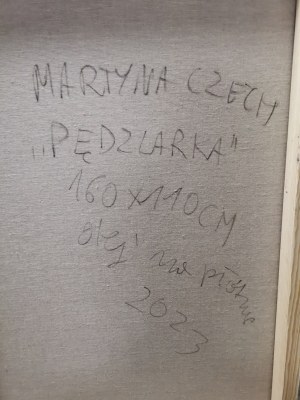 MARTYNA CZECH
„PĘDZLARKA"
160X110CM
olej na płótnie
2023